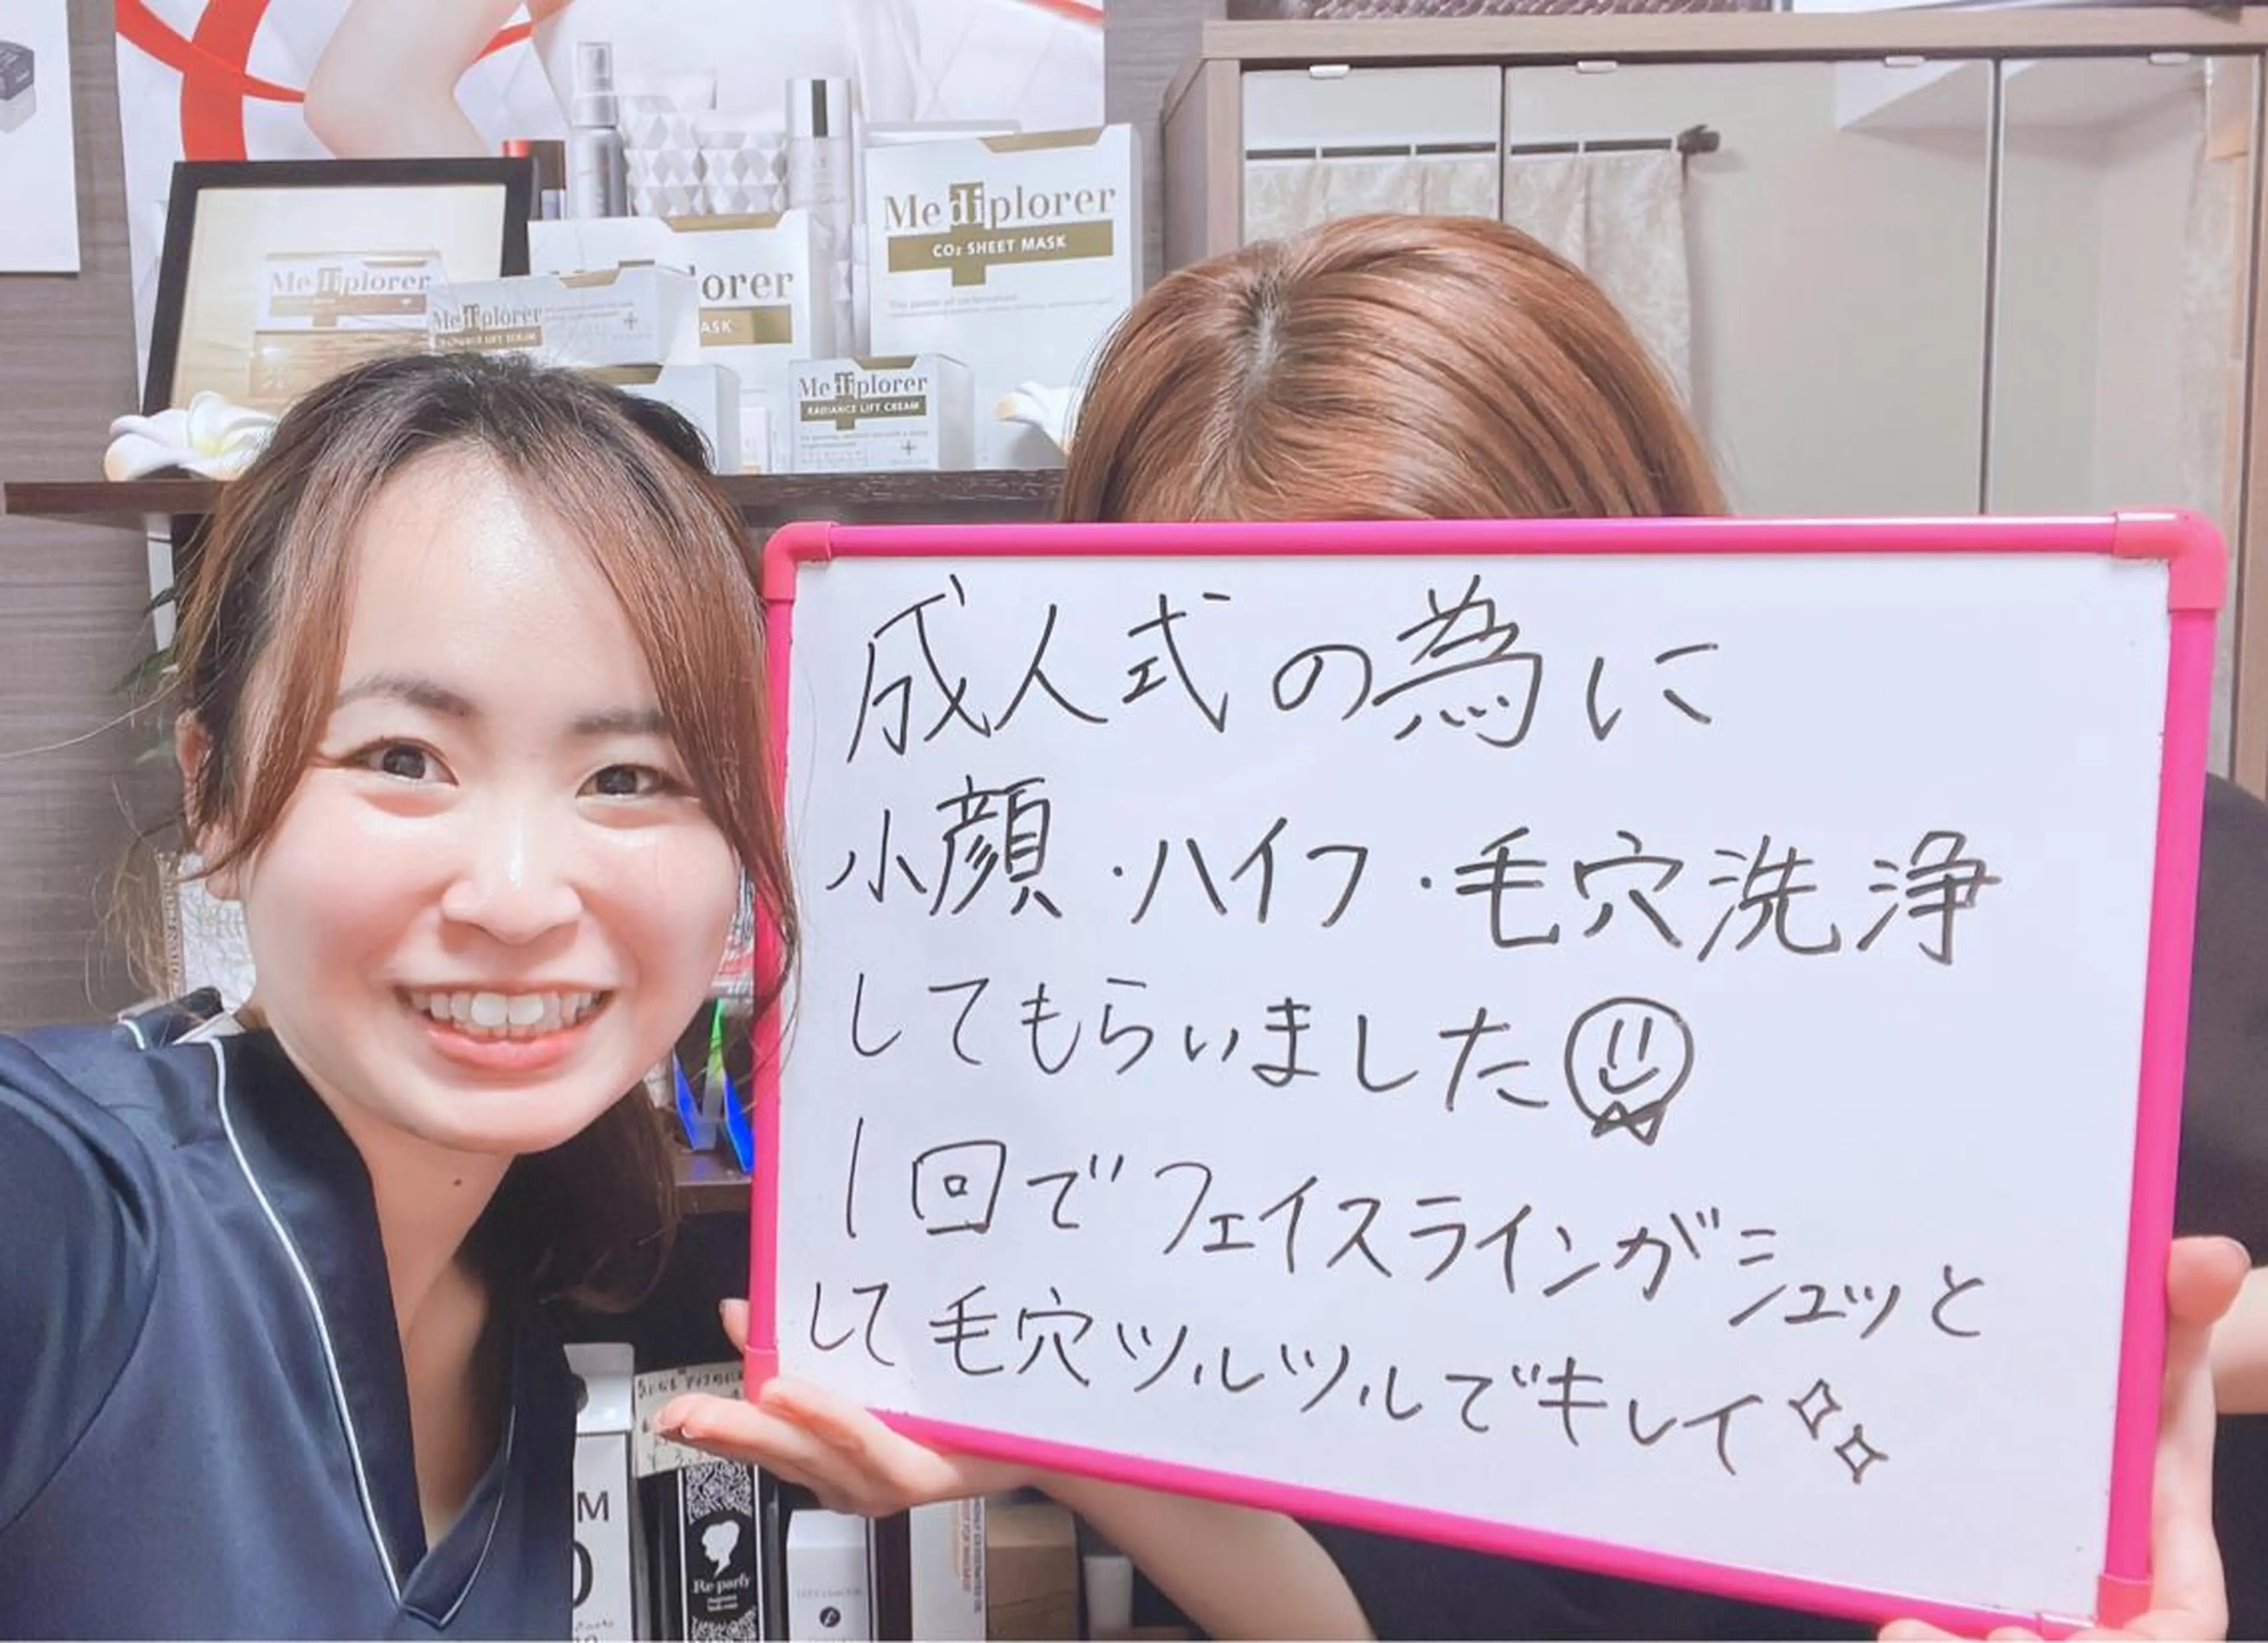 Mediplorer
CO₂ SHEET MASK
Mediplorer
Mediplorer
lorer
ASK
Mediplorer
RADIANCE LIFT CREAM
成人式の為に
小顔・ハイフ・毛穴洗浄
してもらいました
1回でフェイスラインがシュッと
して毛穴ツルツルでキレイ
M
Re-parfy